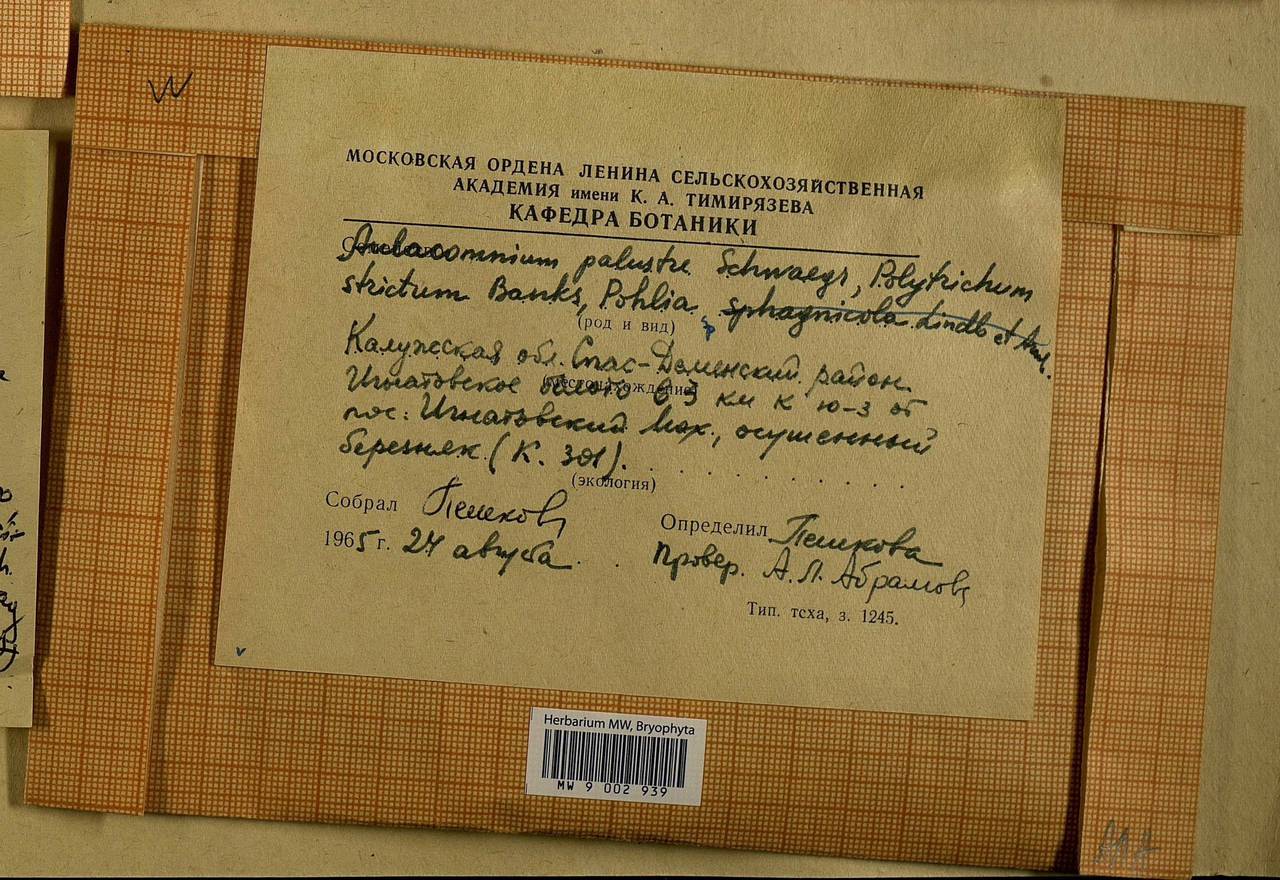 W
МОСКОВСКАЯ ОРДЕНА ЛЕНИНА СЕЛЬСКОХОЗЯЙСТВЕННАЯ
АКАДЕМИЯ имени К. А. ТИМИРЯЗЕВА
КАФЕДРА БОТАНИКИ
Aulacomnium palustre Schwaegr, Polytrichum
strictum Banks, Pohlia sp sphagnicola Lindb et
(род и вид)
Калужская обл. Спас-Деменский район.
(местонахождение)
Игнатовское болото в 3 км к ю-з от
пос: Игнатовский Мох, осушенный
березняк (К. 301).
(экология)
Собрал Пешков
Определил Пешкова
1965 г. 24 августа
Провер. А.Л. Абрамов
Тип. тсха, з. 1245.
Herbarium MW, Bryophyta
MW 9 002 939